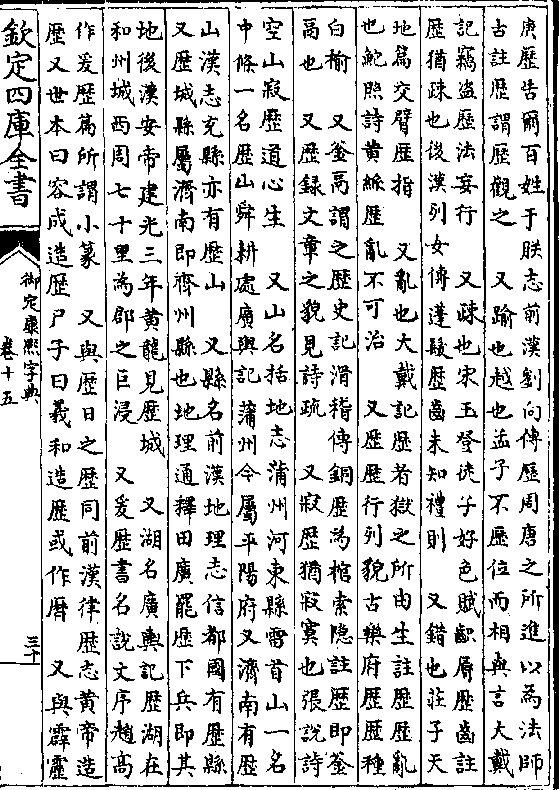 庚歷告爾百姓于朕志前漢劉向傳歷周唐之所進以為法師
古註歷謂歷觀之　又踰也越也孟子不歷位而相與言大戴
記竊盜歷法妄行　又疎也宋玉登徒子好色賦齞脣歷齒註
歷猶疎也後漢列女傳蓬髮歷齒未知禮則　又錯也莊子天
地篇交臂歷指　又亂也大戴記歷者獄之所由生註歷歷亂
也鮑照詩黃絲歷亂不可治　又歷歷行列貌古樂府歷歷種
白榆　又釜鬲謂之歷史記滑稽傳銅歷為棺索隐註歷即釜
鬲也　又歷録文章之貌見詩疏　又寂歷猶寂寞也張說詩
空山寂歷道心生　又山名括地志蒲州河東縣雷首山一名
中條一名歷山舜耕處廣輿記蒲州今屬平陽府又濟南有歷
山漢志充縣亦有歷山　又縣名前漢地理志信都國有歷縣
又歷城縣屬濟南即齊州縣也地理通釋田廣罷歷下兵即其
地後漢安帝建光三年黃龍見歷城　又湖名廣輿記歷湖在
和州城西周七十里為郡之巨浸　又爰歷書名說文序趙高
作爰歷篇所謂小篆　又與歷日之歷同前漢律歷志黃帝造
歷又世本曰容成造歷尸子曰羲和造歷或作曆　又與霹靂
欽定四庫全書
御定康熙字典
卷十五
三十